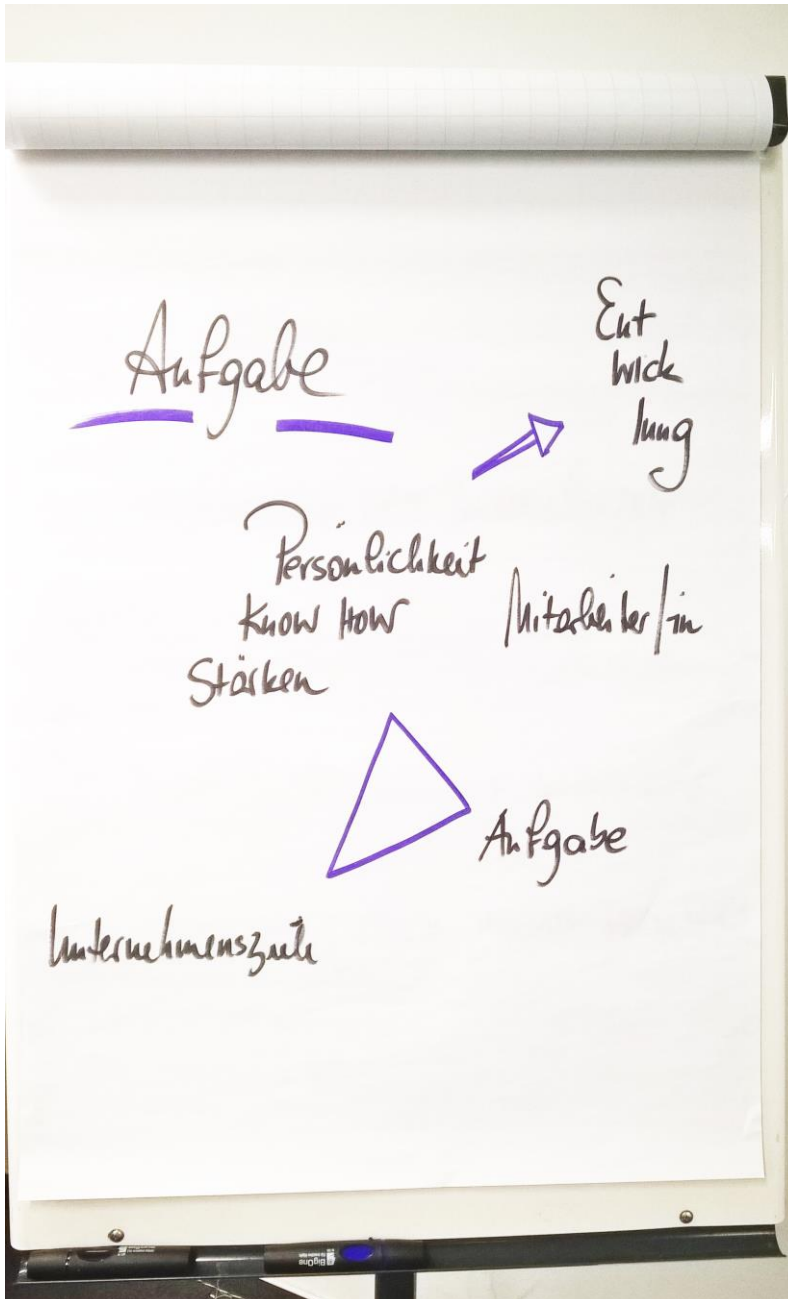 Aufgabe
Ent
wick
lung
Persönlichkeit
Know How
Stärken
Mitarbeiter/in
Aufgabe
Unternehmensziele
BigOne